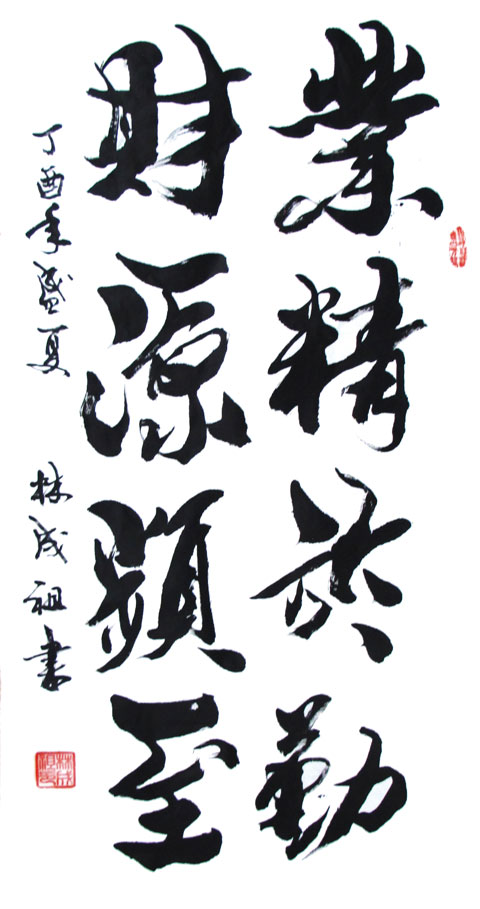 業精於勤
財源頻至
丁酉年盛夏 林成祖書